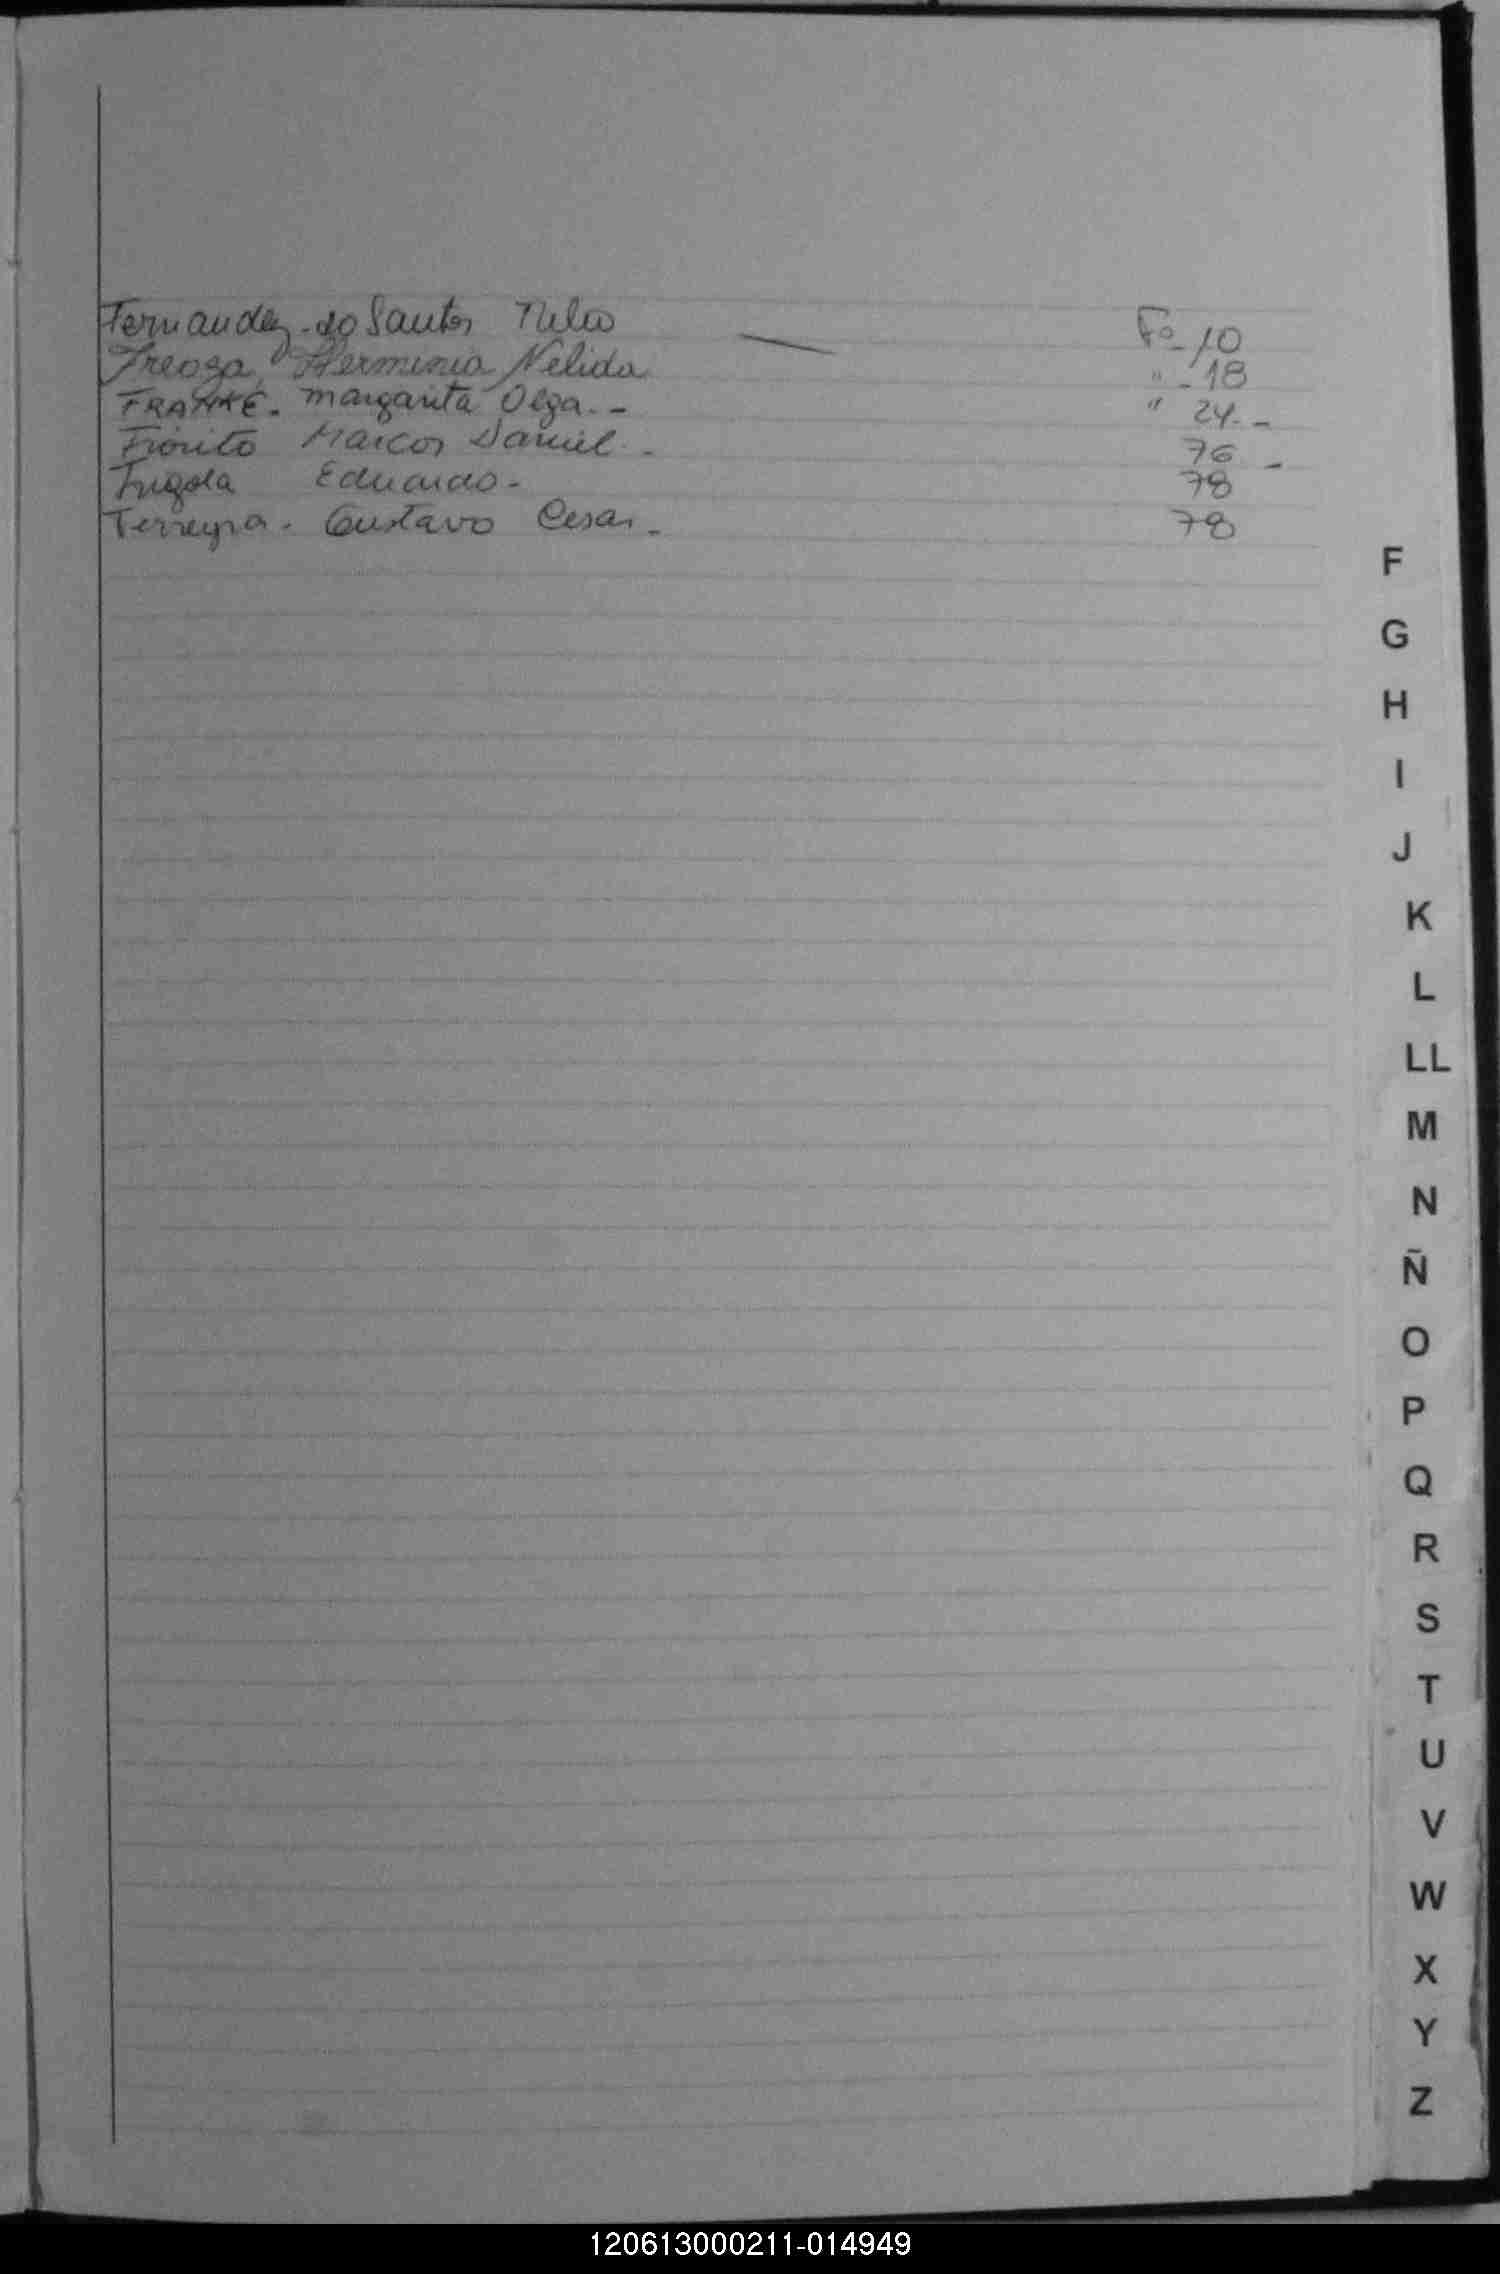 Fernandez do Santos Fº 10
Herminia Nelida " - 18
FRANKE. Margarita Olga. - " 24. -
Fiorito Marcos Daniel. - 76 -
Eduardo. - 78
Ferreyra. Gustavo Cesar. - 78
F
G
H
I
J
K
L
LL
M
N
Ñ
O
P
Q
R
S
T
U
V
W
X
Y
Z
120613000211-014949